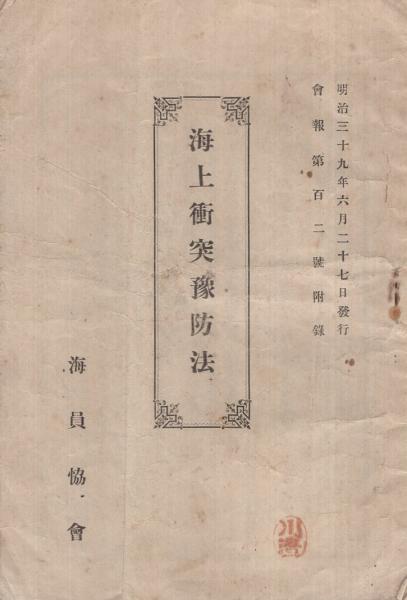 明治三十九年六月二十七日發行
會報第百二號附錄
海上衝突豫防法
海員協會